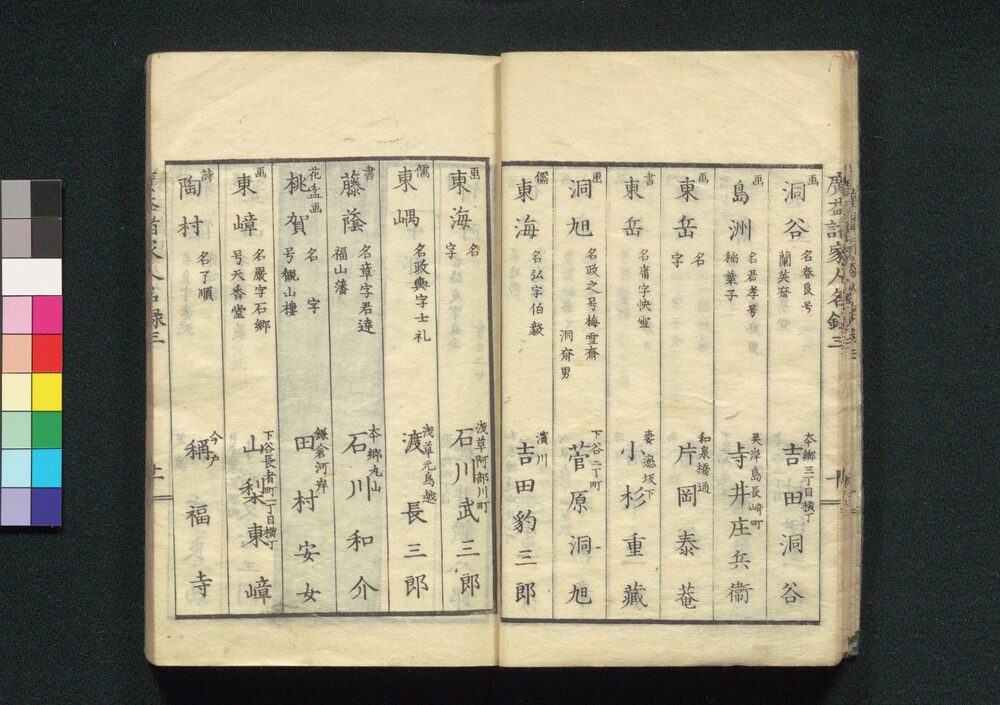 廣益諸家人名録 三
画 洞谷 名春良号蘭英齋 本郷三丁目横丁 吉田洞谷
画 島洲 名君孝号稲葉子 灵岸島長崎町 寺井庄兵衞
画 東岳 名 字 和泉橋通 片岡泰菴
書 東岳 名庸字快雪 妻恋坂下 小杉重藏
画 洞旭 名政之号梅雪齋 洞齋男 下谷二丁町 菅原洞旭
儒 東海 名弘字伯毅 濱川 吉田豹三郎
画 東海 名 字 浅草阿部川町 石川武三郎
儒 東嵎 名政輿字士礼 浅草元鳥越 渡長三郎
書 藤蔭 名章字君達 福山藩 本郷丸山 石川和介
花盆画 桃賀 名 字 号観山樓 鎌倉河岸 田村安女
画 東嶂 名嚴字石郷 号天香堂 下谷長者町一丁目横丁 山梨東嶂
詩 陶村 名了順 今戸 稱福寺